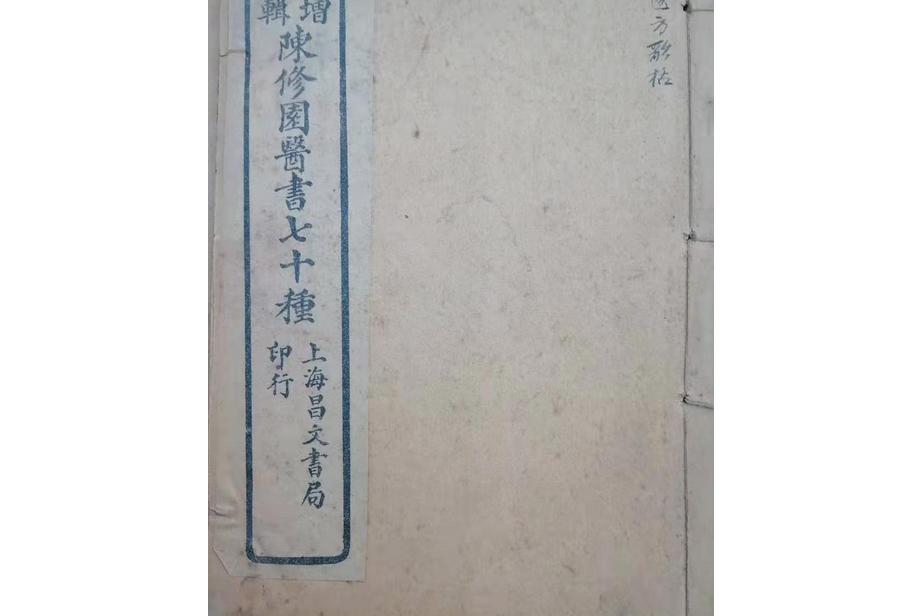 方歌括
增輯
陳修園醫書七十種
上海昌文書局
印行